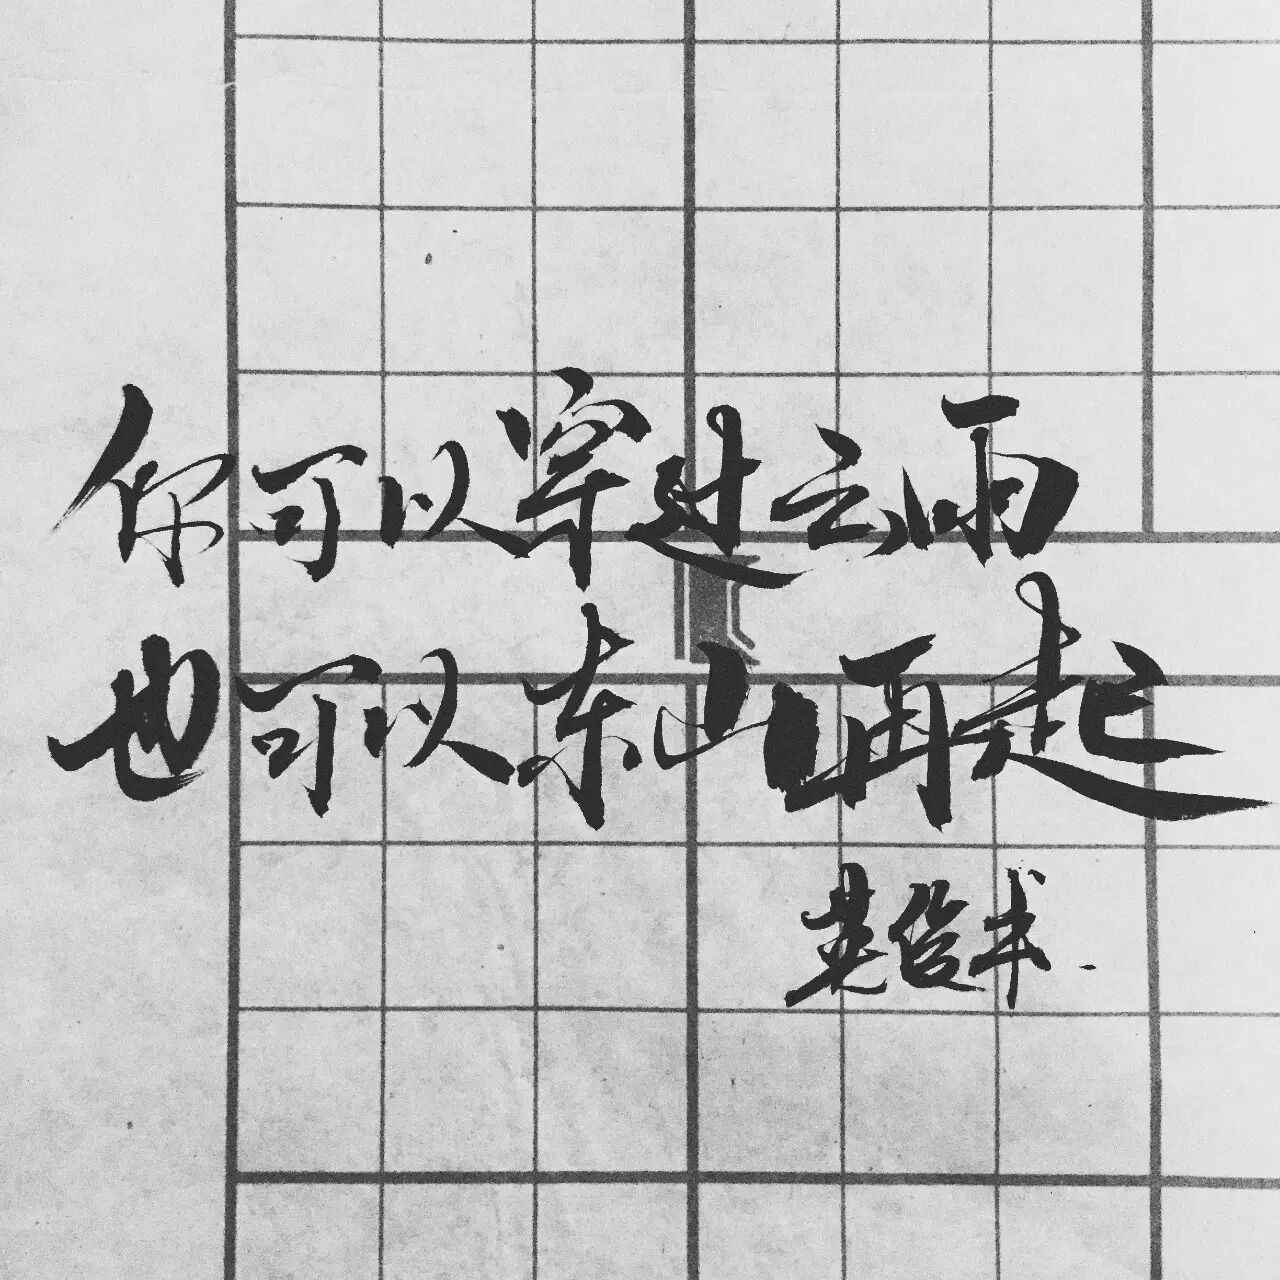 你可以穿过云雨
也可以东山再起
俊书